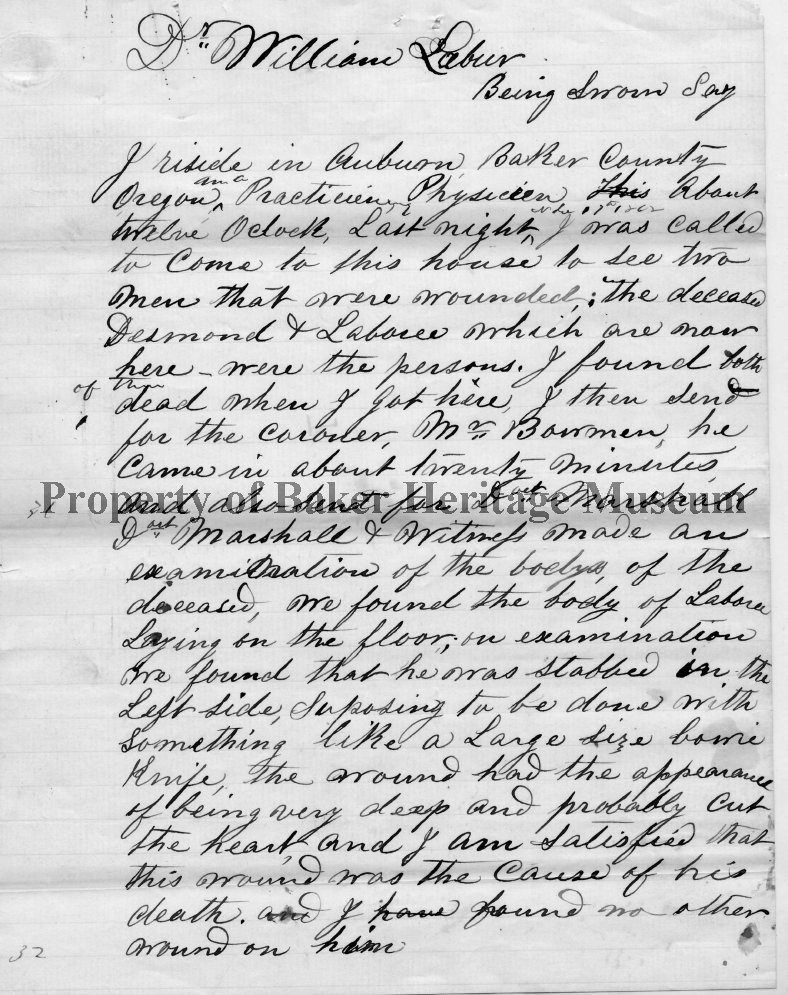 Dr William Labur
Being Sworn Say
I riside in Auburn, Baker County
Oregon, am a Practicieing Physicien, This About
twelve Oclock, Last night, I was called
to Come to this house to see two
men that were wounded; the deceased
Desmond & Laboree which are now
here - were the persons. I found both
of them
dead when I got here, I then send
for the coroner, Mr Bowmen, he
came in about twenty minutes
Property of Baker Heritage Museum
and also sent for Doct Marshall
Doct Marshall & Witness made an
examination of the bodys, of the
deceased, we found the body of Laboree
Laying on the floor; on examination
we found that he was stabbed in the
Left side, Suposing to be done with
something like a Large size bowie
Knife, the wound had the appearance
of being very deep and probably cut
the heart, and I am satisfied that
this wound was the Cause of his
death. and I have found no other
wound on him
32